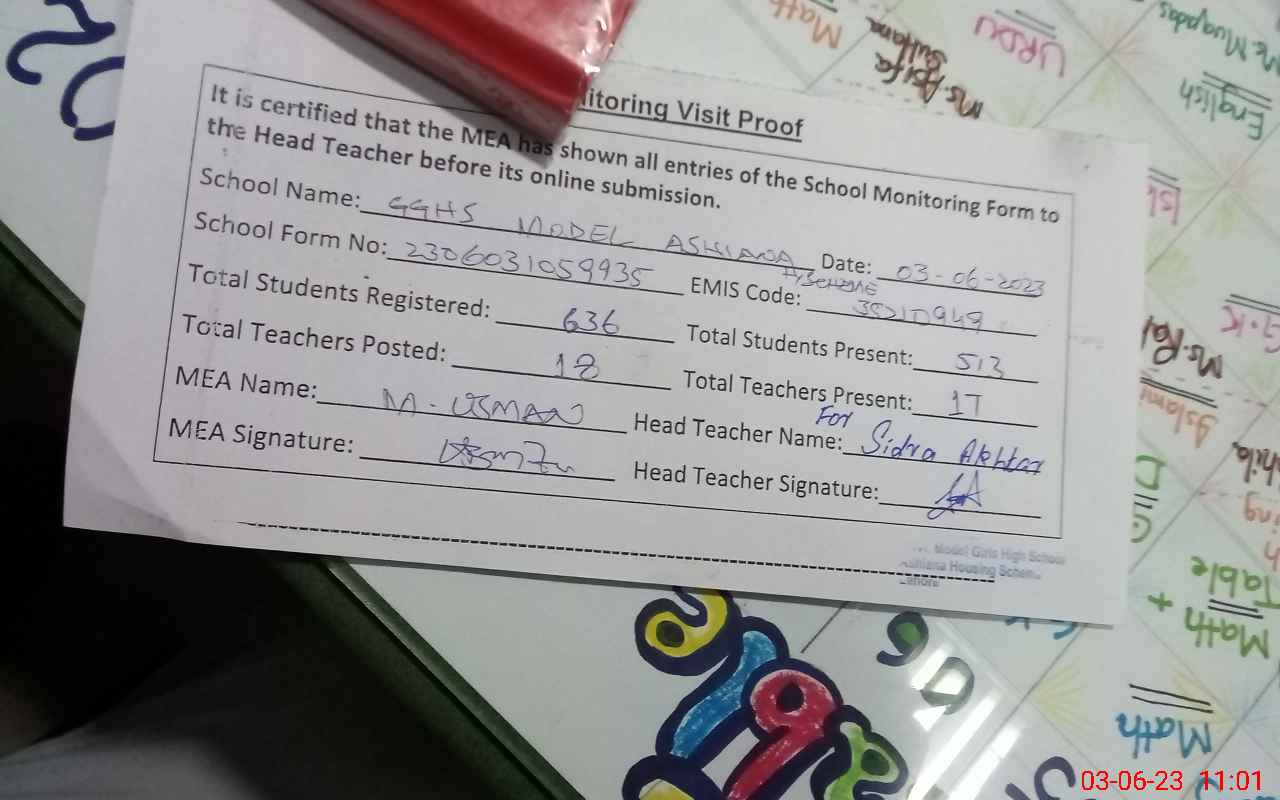 itoring Visit Proof
It is certified that the MEA has shown all entries of the School Monitoring Form to
the Head Teacher before its online submission.
School Name: GGHS MODEL ASHIANA Date: 03-06-2023
H/SCHEME
School Form No: 2306031059935 EMIS Code: 35210949
Total Students Registered: 636 Total Students Present: 513
Total Teachers Posted: 18 Total Teachers Present: 17
MEA Name: M-USMAN Head Teacher Name: For Sidra Akhtar
MEA Signature: Head Teacher Signature:
Model Girls High School
Ashiana Housing Scheme
Lahore
Math
Ms. Asifa
Sultana
URDU
English
G.K
Math +
Table
Math
03-06-23 11:01